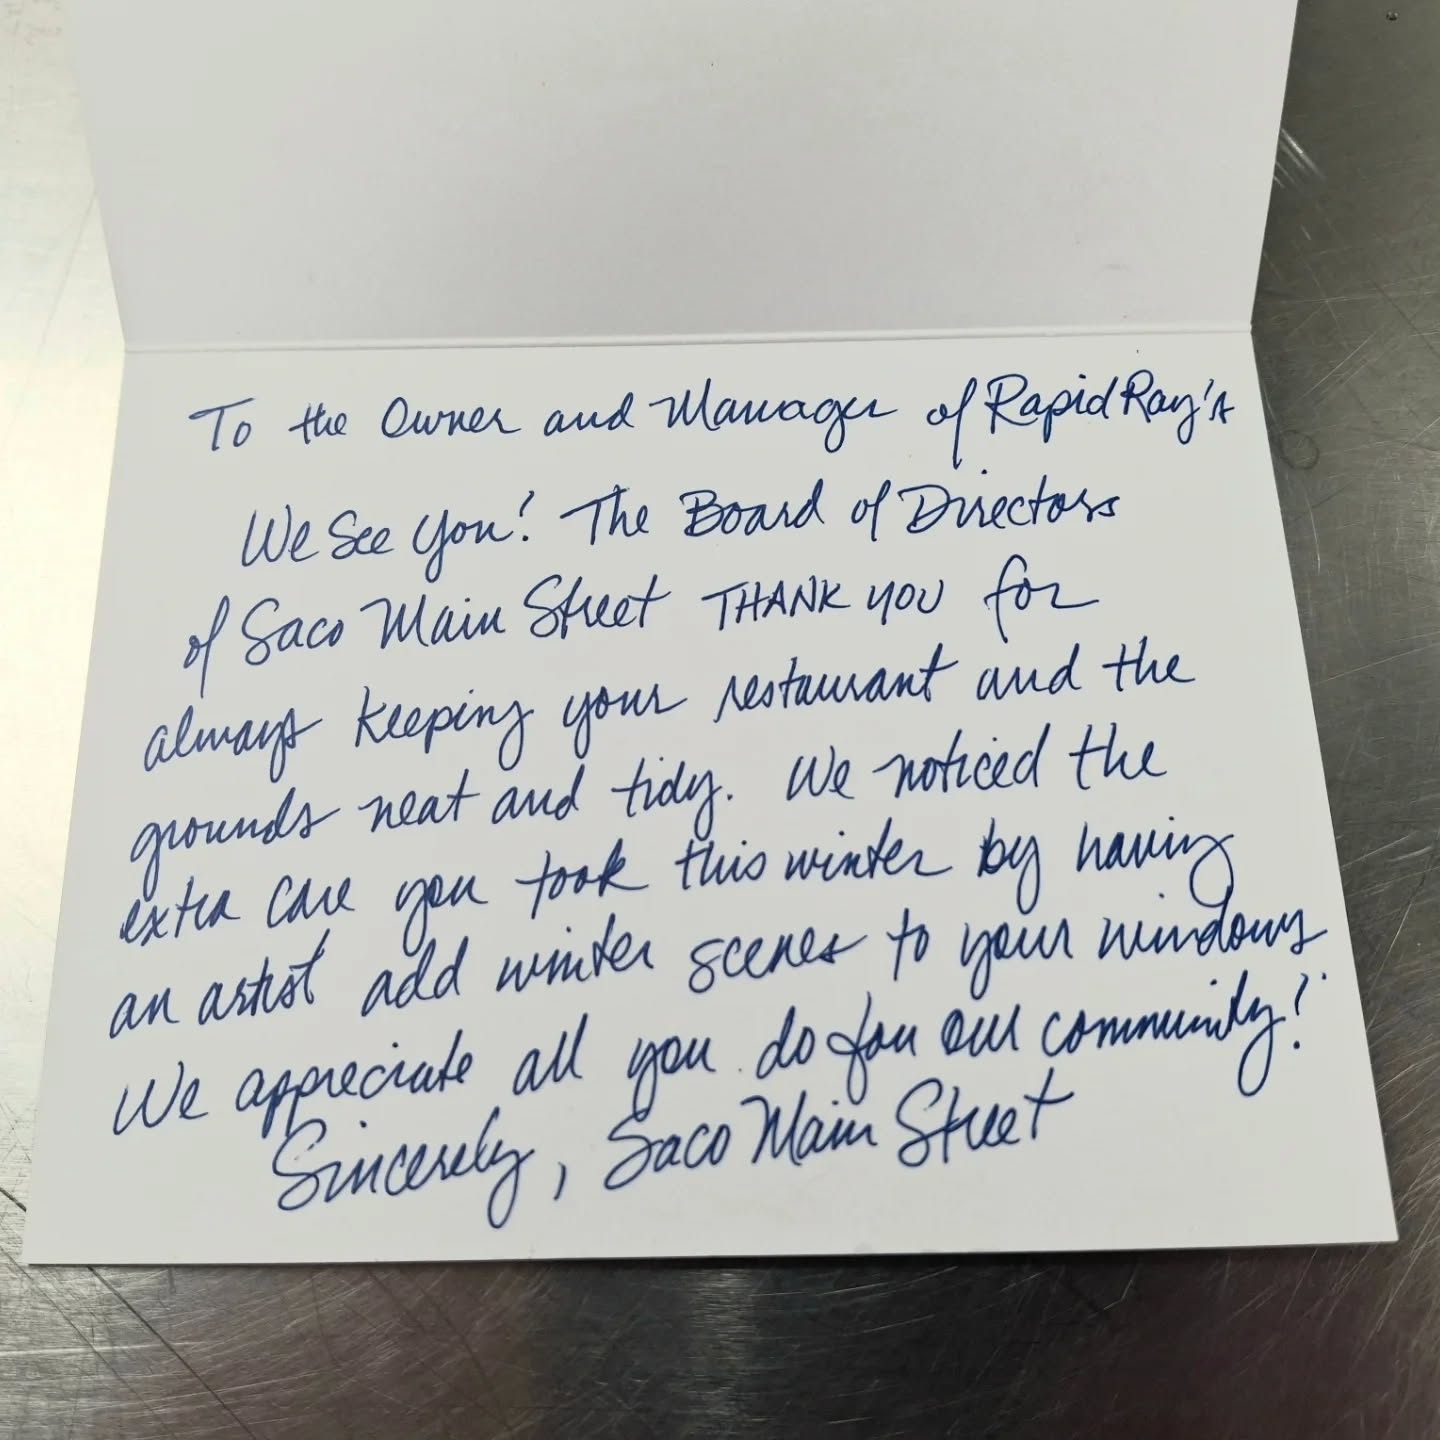 To the Owner and Manager of Rapid Ray's
We See You! The Board of Directors
of Saco Main Street THANK YOU for
always keeping your restaurant and the
grounds neat and tidy. We noticed the
extra care you took this winter by having
an artist add winter scenes to your windows.
We appreciate all you do for our community!
Sincerely, Saco Main Street